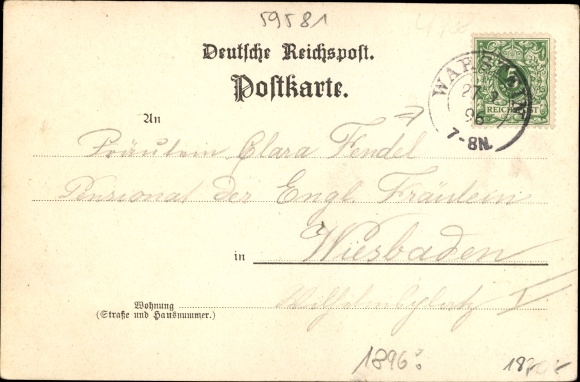 59581
Deutsche Reichspost.
Postkarte.
WARSTEIN
27
96
7-8N.
REICHSPOST
An
Fräulein Clara Fendel
Pensionat der Engl. Fräulein
in Wiesbaden
Wohnung
(Straße und Hausnummer.)
1896?